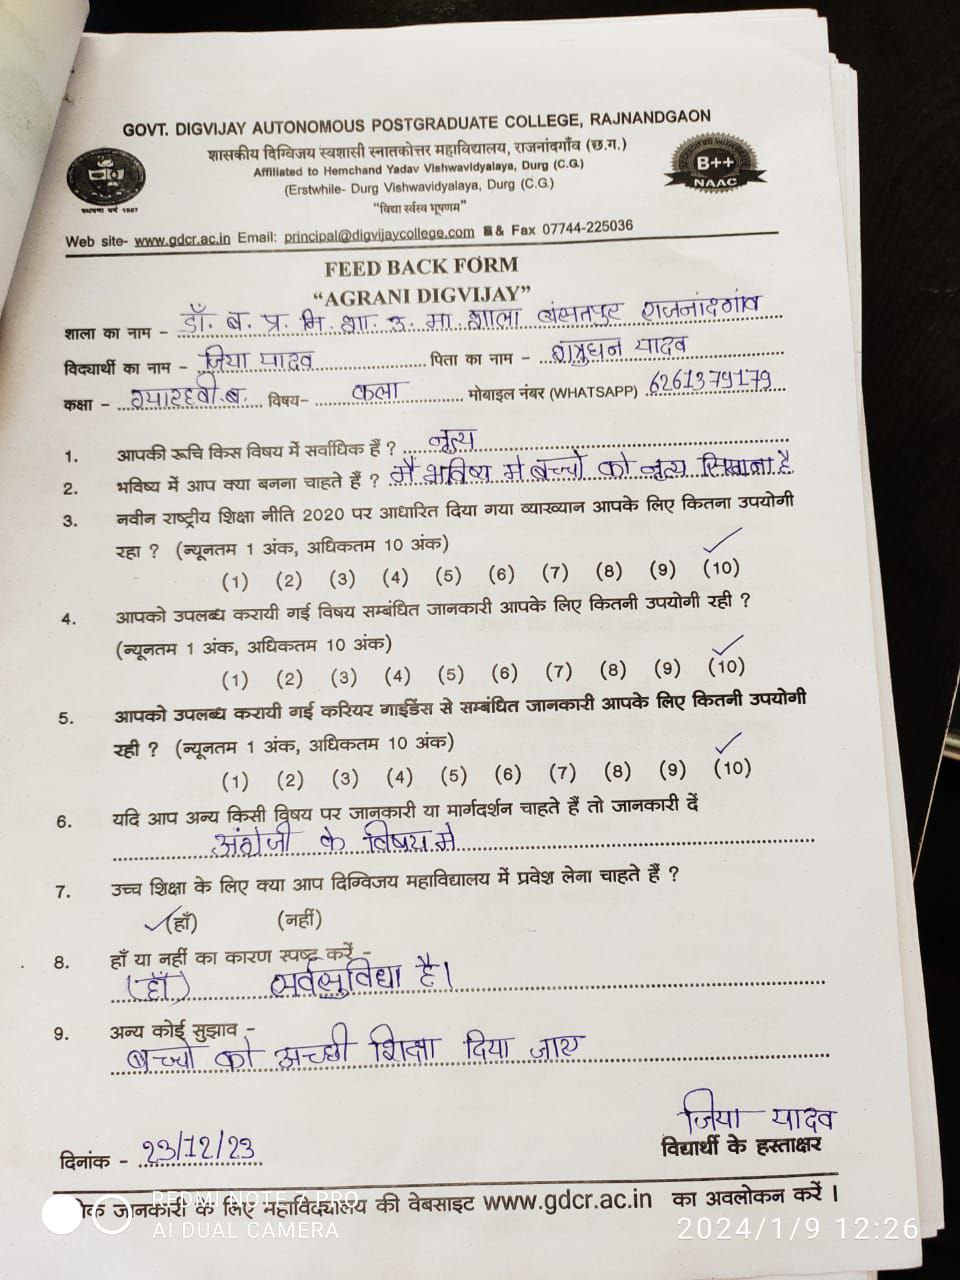 GOVT. DIGVIJAY AUTONOMOUS POSTGRADUATE COLLEGE, RAJNANDGAON
शासकीय दिग्विजय स्वशासी स्नातकोत्तर महाविद्यालय, राजनांदगाँव (छ.ग.)
Affiliated to Hemchand Yadav Vishwavidyalaya, Durg (C.G.)
(Erstwhile- Durg Vishwavidyalaya, Durg (C.G.)
"विद्या र्स्वस्व भूषणम"
स्थापना वर्ष 1957
B++
NAAC
Web site- www.gdcr.ac.in Email: principal@digvijaycollege.com & Fax 07744-225036
FEED BACK FORM
"AGRANI DIGVIJAY"
शाला का नाम - डॉ. ब. प्र. मि. शा. उ. मा. शाला बंसतपुर राजनांदगांव
विद्यार्थी का नाम - जिया यादव पिता का नाम - शत्रुघन यादव
कक्षा - ग्यारहवी.ब. विषय- कला मोबाइल नंबर (WHATSAPP) 6261379179
1. आपकी रूचि किस विषय में सर्वाधिक हैं ? नृत्य
2. भविष्य में आप क्या बनना चाहते हैं ? मै भविष्य मे बच्चो को नृत्य सिखाना है
3. नवीन राष्ट्रीय शिक्षा नीति 2020 पर आधारित दिया गया व्याख्यान आपके लिए कितना उपयोगी
रहा ? (न्यूनतम 1 अंक, अधिकतम 10 अंक)
(1) (2) (3) (4) (5) (6) (7) (8) (9) (10)
4. आपको उपलब्ध करायी गई विषय सम्बंधित जानकारी आपके लिए कितनी उपयोगी रही ?
(न्यूनतम 1 अंक, अधिकतम 10 अंक)
(1) (2) (3) (4) (5) (6) (7) (8) (9) (10)
5. आपको उपलब्ध करायी गई करियर गाईडेंस से सम्बंधित जानकारी आपके लिए कितनी उपयोगी
रही ? (न्यूनतम 1 अंक, अधिकतम 10 अंक)
(1) (2) (3) (4) (5) (6) (7) (8) (9) (10)
6. यदि आप अन्य किसी विषय पर जानकारी या मार्गदर्शन चाहते हैं तो जानकारी दें
अंग्रेजी के विषय मे
7. उच्च शिक्षा के लिए क्या आप दिग्विजय महाविद्यालय में प्रवेश लेना चाहते हैं ?
(हाँ) (नहीं)
8. हाँ या नहीं का कारण स्पष्ट करें -
(हाँ) सर्वसुविधा है।
9. अन्य कोई सुझाव -
बच्चो को अच्छी शिक्षा दिया जाए
जिया यादव
दिनांक - 23/12/23 विद्यार्थी के हस्ताक्षर
जानकारी के लिए महाविद्यालय की वेबसाइट www.gdcr.ac.in का अवलोकन करें ।
REDMI NOTE PRO
AI DUAL CAMERA
2024/1/9 12:26